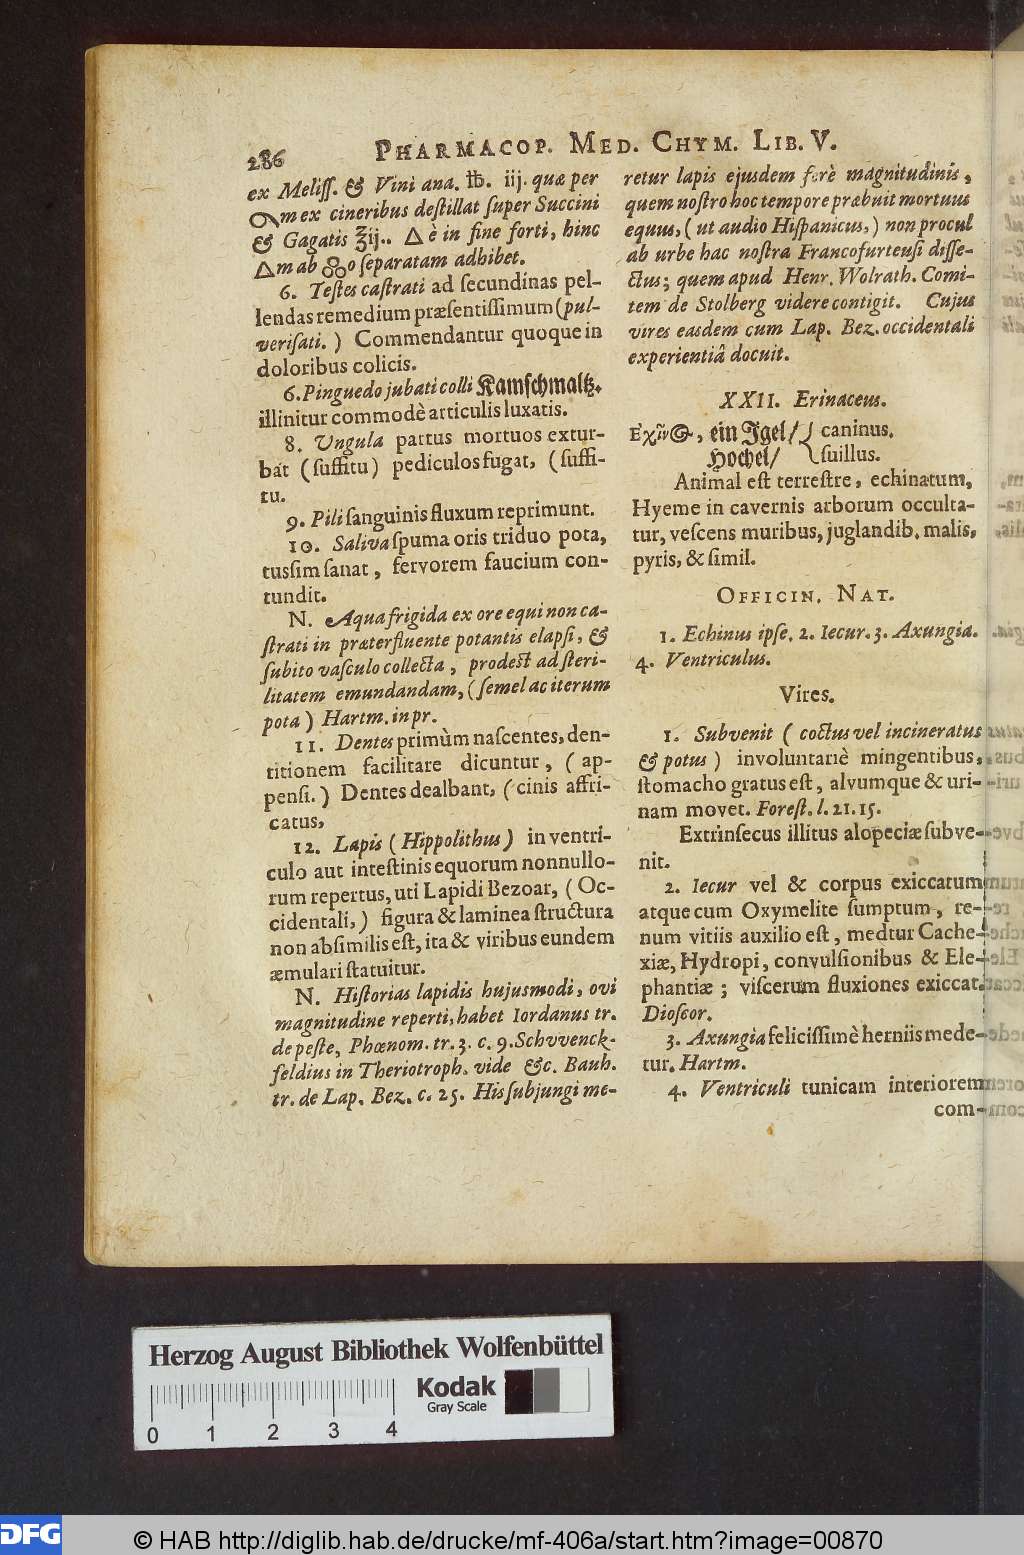 286
PHARMACOP. MED. CHYM. LIB. V.
ex Meliſſ. & Vini ana. ℔. iij. quæ per
m ex cineribus deſtillat ſuper Succini
& Gagatis ʒij.. △ è in fine forti, hinc
△m ab o ſeparatam adhibet.
6. Teſtes caſtrati ad ſecundinas pel-
lendas remedium præſentiſſimum (pul-
veriſati.) Commendantur quoque in
doloribus colicis.
6. Pinguedo jubati colli Kamſchmaltz.
illinitur commodè articulis luxatis.
8. Ungula partus mortuos extur-
bat (ſuffitu) pediculos fugat, (ſuffi-
tu.
9. Pili ſanguinis fluxum reprimunt.
10. Saliva ſpuma oris triduo pota,
tusſim ſanat, fervorem faucium con-
tundit.
N. Aqua frigida ex ore equi non ca-
ſtrati in præterfluente potantis elapſi, &
ſubito vaſculo collecta, prodeſt ad ſteri-
litatem emundandam, (ſemel ac iterum
pota) Hartm. in pr.
11. Dentes primùm naſcentes, den-
titionem facilitare dicuntur, (ap-
penſi.) Dentes dealbant, (cinis affri-
catus,
12. Lapis (Hippolithus) in ventri-
culo aut inteſtinis equorum nonnullo-
rum repertus, uti Lapidi Bezoar, (Oc-
cidentali,) figura & laminea ſtructura
non abſimilis eſt, ita & viribus eundem
æmulari ſtatuitur.
N. Hiſtorias lapidis hujusmodi, ovi
magnitudine reperti, habet Iordanus tr.
de peſte, Phœnom. tr. 3. c. 9. Schvvenck-
feldius in Theriotroph. vide &c. Bauh.
tr. de Lap. Bez. c. 25. His ſubjungi me-
retur lapis ejusdem ferè magnitudinis,
quem noſtro hoc tempore præbuit mortuus
equus, (ut audio Hiſpanicus,) non procul
ab urbe hac noſtra Francofurtenſi diſſe-
ctus; quem apud Henr. Wolrath. Comi-
tem de Stolberg videre contigit. Cujus
vires easdem cum Lap. Bez. occidentali
experientiâ docuit.
XXII. Erinaceus.
Ἐχῖν, ein Igel/ { caninus.
Hochel/ ſuillus.
Animal eſt terreſtre, echinatum,
Hyeme in cavernis arborum occulta-
tur, veſcens muribus, juglandib. malis,
pyris, & ſimil.
OFFICIN. NAT.
1. Echinus ipſe. 2. Iecur. 3. Axungia.
4. Ventriculus.
Vires.
1. Subvenit (coctus vel incineratus
& potus) involuntariè mingentibus,
ſtomacho gratus eſt, alvumque & uri-
nam movet. Foreſt. l. 21. 15.
Extrinſecus illitus alopeciæ ſubve-
nit.
2. Iecur vel & corpus exiccatum
atque cum Oxymelite ſumptum, re-
num vitiis auxilio eſt, medtur Cache-
xiæ, Hydropi, convulſionibus & Ele-
phantiæ; viſcerum fluxiones exiccat.
Dioſcor.
3. Axungia feliciſſimè herniis mede-
tur. Hartm.
4. Ventriculi tunicam interiorem
com-
Herzog August Bibliothek Wolfenbüttel
Kodak
Gray Scale
0 1 2 3 4
DFG
© HAB http://diglib.hab.de/drucke/mf-406a/start.htm?image=00870